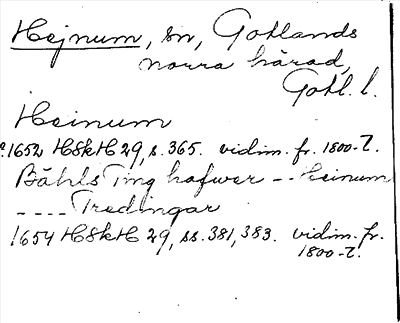 Hejnum, sn, Gotlands
norra härad,
Gotl. l.
Heinum
c. 1652 HSkH 29, s. 365. vidim. fr. 1800-t.
Bähls Ting hafwer -- Heinum
---- Tredingar
1654 HSkH 29, ss. 381, 383. vidim. fr.
1800-t.